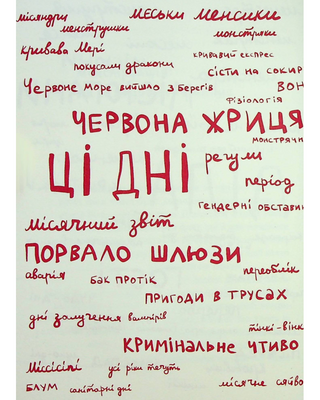 місяндри
МЕСЬКИ МЕНСИКИ
менструшки
монстряки
кривава Мері
кривавий експрес
покусали дракони
СІСТИ НА СОКИР
Червоне море вийшло з берегів
ВОН
Фізіологія
ЧЕРВОНА ЖРИЦЯ
монстрячи
ЦІ ДНІ
регули
період
ґендерні обставин
місячний звіт
ПОРВАЛО ШЛЮЗИ
аварія
БАК ПРОТІК
переоблік
ПРИГОДИ В ТРУСАХ
дні залучення вампірів
тінкі-вінк
КРИМІНАЛЬНЕ ЧТИВО
Міссісіпі
усі ріки течуть
БЛУМ
санітарні дні
місячне сяйво